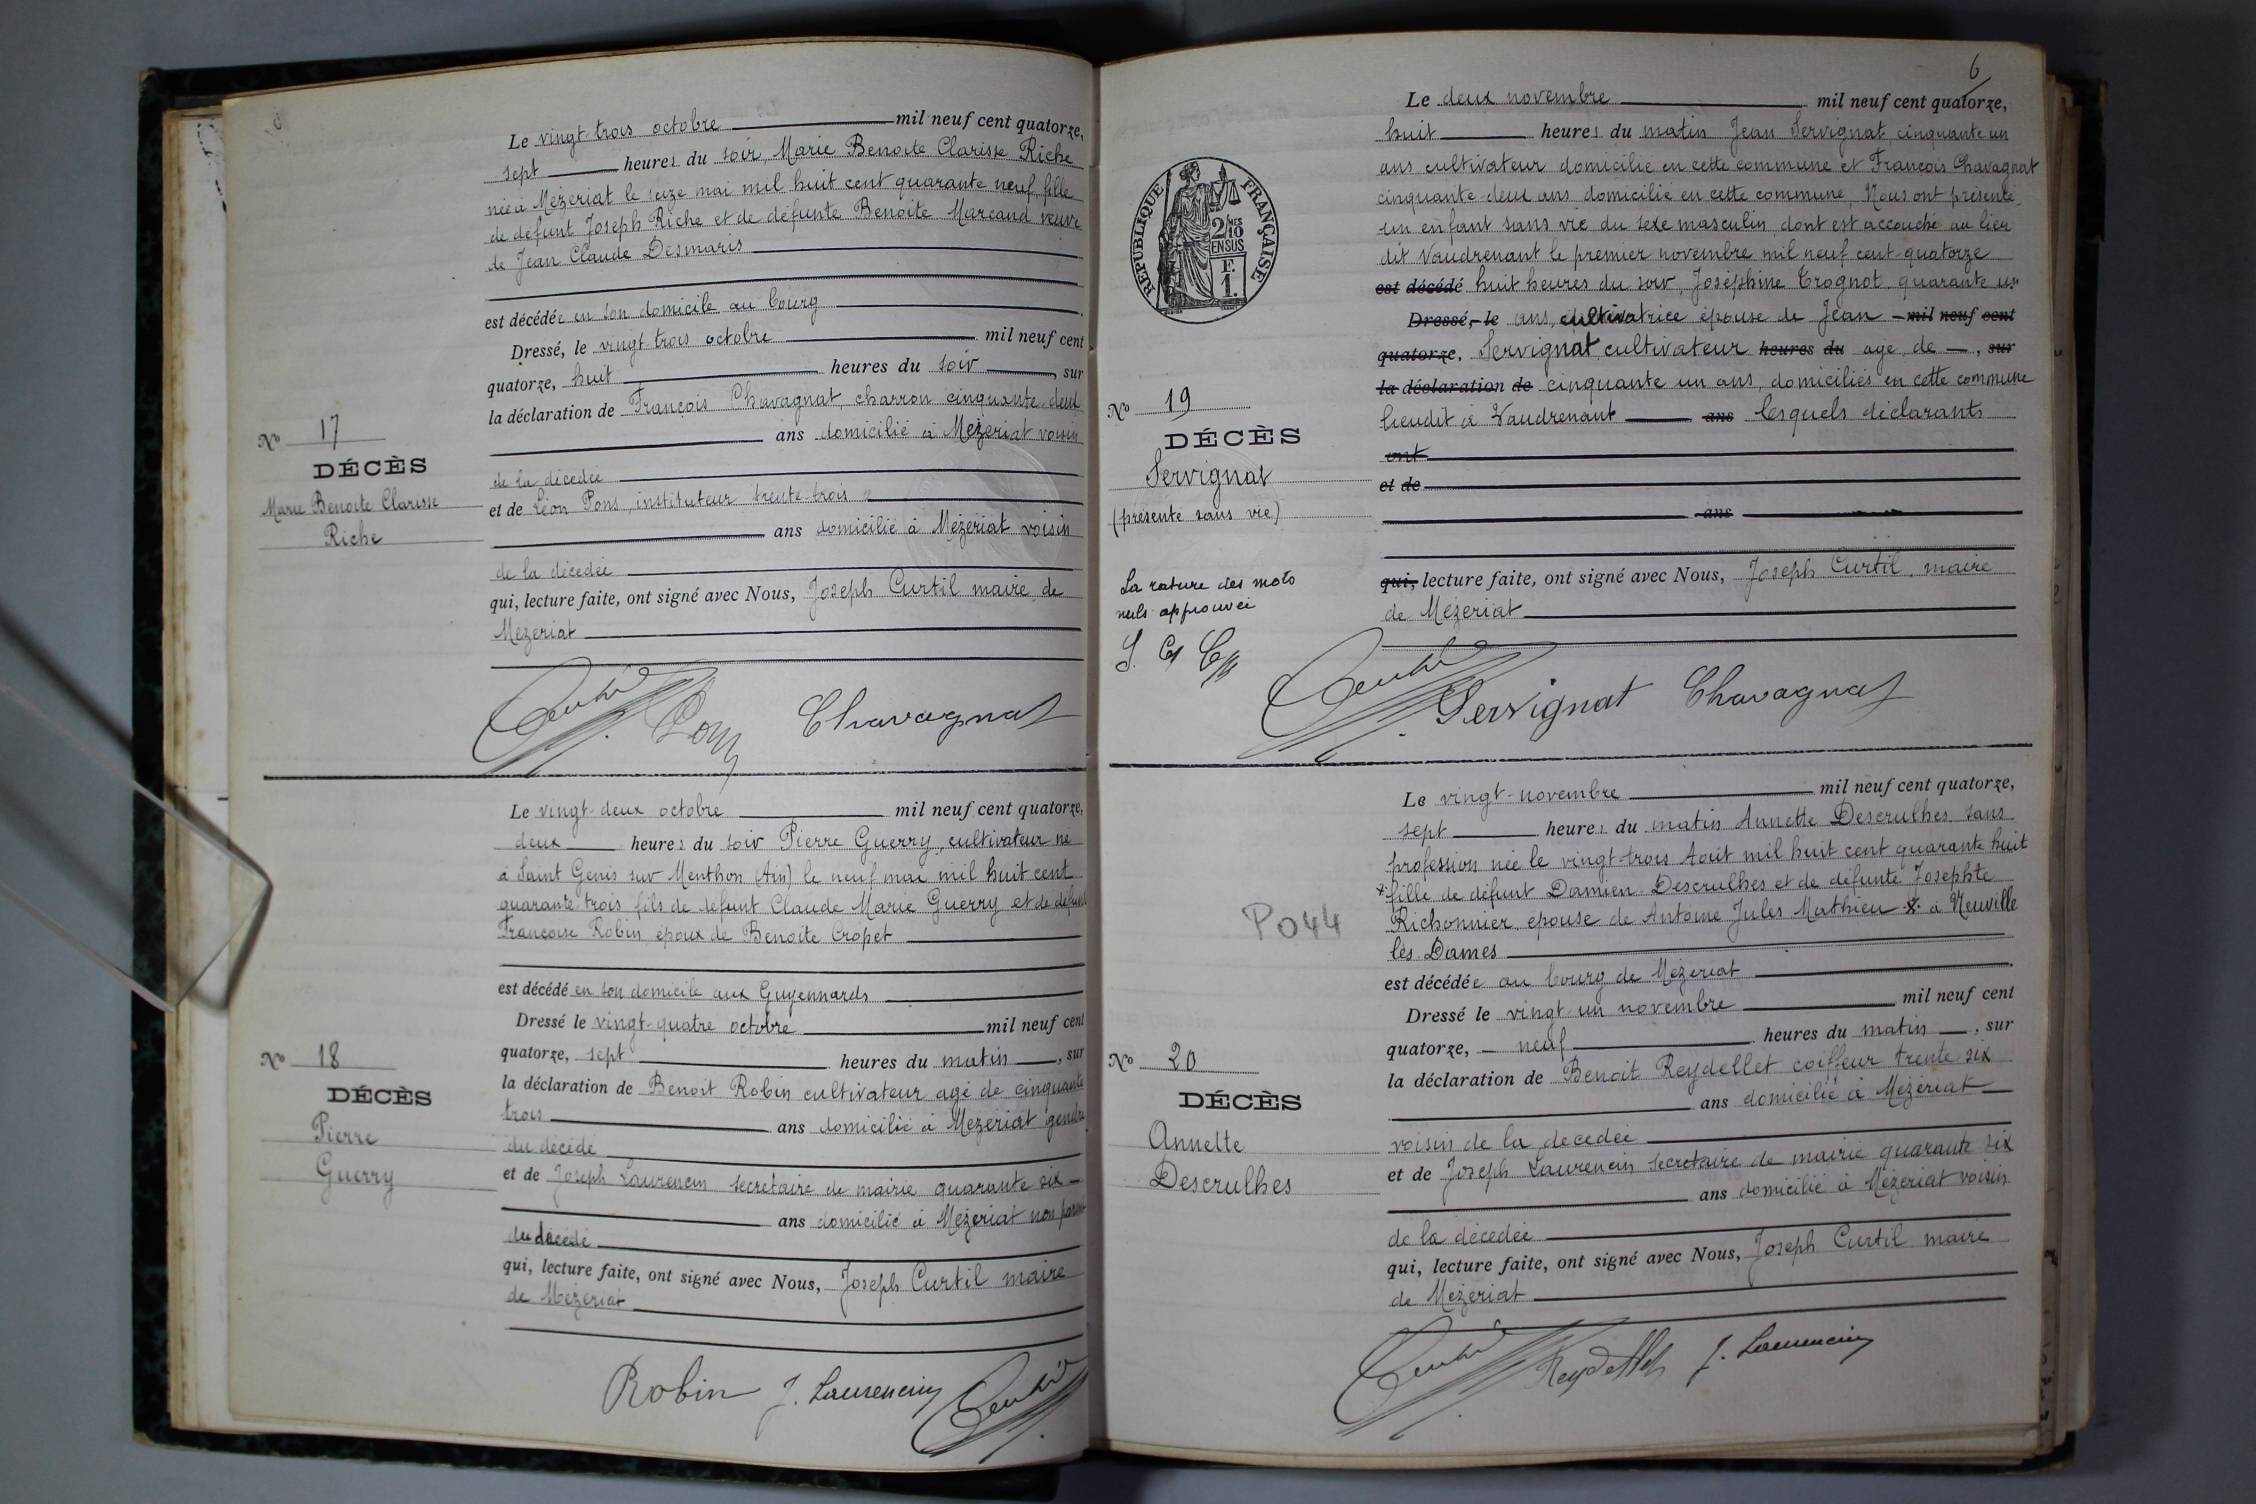 Le vingt-trois octobre mil neuf cent quatorze,
sept heures du soir, Marie Benoite Clarisse Riche
née à Mézeriat le seize mai mil huit cent quarante neuf, fille
de défunt Joseph Riche et de défunte Benoite Marcand veuve
de Jean Claude Desmaris
est décédée en son domicile au bourg
Dressé, le vingt-trois octobre mil neuf cent
quatorze, huit heures du soir, sur
la déclaration de François Chavagnat, charron cinquante-deux
ans domicilié à Mézeriat voisin
de la décédée
et de Léon Pons, instituteur trente-trois
ans domicilié à Mézeriat voisin
de la décédée
qui, lecture faite, ont signé avec Nous, Joseph Curtil maire de
Mézeriat
Nº 17
DÉCÈS
Marie Benoite Clarisse
Riche
Curtil Pons Chavagnat
Le vingt-deux octobre mil neuf cent quatorze,
deux heures du soir Pierre Guerry, cultivateur né
à Saint Genis sur Menthon (Ain) le neuf mai mil huit cent
quarante trois fils de défunt Claude Marie Guerry et de défunte
Françoise Robin époux de Benoite Cropet
est décédé en son domicile aux Guyennards
Dressé le vingt-quatre octobre mil neuf cent
quatorze, sept heures du matin, sur
la déclaration de Benoit Robin cultivateur agé de cinquante
trois ans domicilié à Mézeriat gendre
du décédé
et de Joseph Laurencin secretaire de mairie quarante six
ans domicilié à Mézeriat non parent
du décédé
qui, lecture faite, ont signé avec Nous, Joseph Curtil maire
de Mézeriat
Nº 18
DÉCÈS
Pierre
Guerry
Robin J. Laurencin Curtil
6
Le deux novembre mil neuf cent quatorze,
huit heures du matin Jean Servignat, cinquante un
ans cultivateur domicilié en cette commune et François Chavagnat
cinquante deux ans domicilié en cette commune, Nous ont présenté
un enfant sans vie du sexe masculin, dont est accouché au lieu
dit Vaudrenant le premier novembre mil neuf cent-quatorze
est décédé huit heures du soir, Joséphine Trognot quarante un
Dressé, le ans, cultivatrice épouse de Jean mil neuf cent
quatorze, Servignat cultivateur heures du agé de, sur
la déclaration de cinquante un ans, domiciliés en cette commune
lieudit à Vaudrenant ans lesquels déclarants
ont
et de
ans
qui, lecture faite, ont signé avec Nous, Joseph Curtil, maire
de Mézeriat
RÉPUBLIQUE FRANÇAISE
2/10 MES
EN SUS
F.
1.
Nº 19
DÉCÈS
Servignat
(présenté sans vie)
La rature des mots
nuls approuvée
S. C
Curtil Servignat Chavagnat
Le vingt-novembre mil neuf cent quatorze,
sept heures du matin Annette Descrulhes sans
profession née le vingt-trois Août mil huit cent quarante huit
* fille de défunt Damien Descrulhes et de défunte Josephte
Richonnier, épouse de Antoine Jules Mathieu * à Neuville
les Dames
est décédée au bourg de Mézeriat
Dressé le vingt-un novembre mil neuf cent
quatorze, neuf heures du matin, sur
la déclaration de Benoit Reydellet coiffeur trente six
ans domicilié à Mézériat
voisin de la décédée
et de Joseph Laurencin secretaire de mairie quarante six
ans domicilié à Mézeriat voisin
de la décédée
qui, lecture faite, ont signé avec Nous, Joseph Curtil maire
de Mézeriat
P044
Nº 20
DÉCÈS
Annette
Descrulhes
Curtil Reydellet J. Laurencin